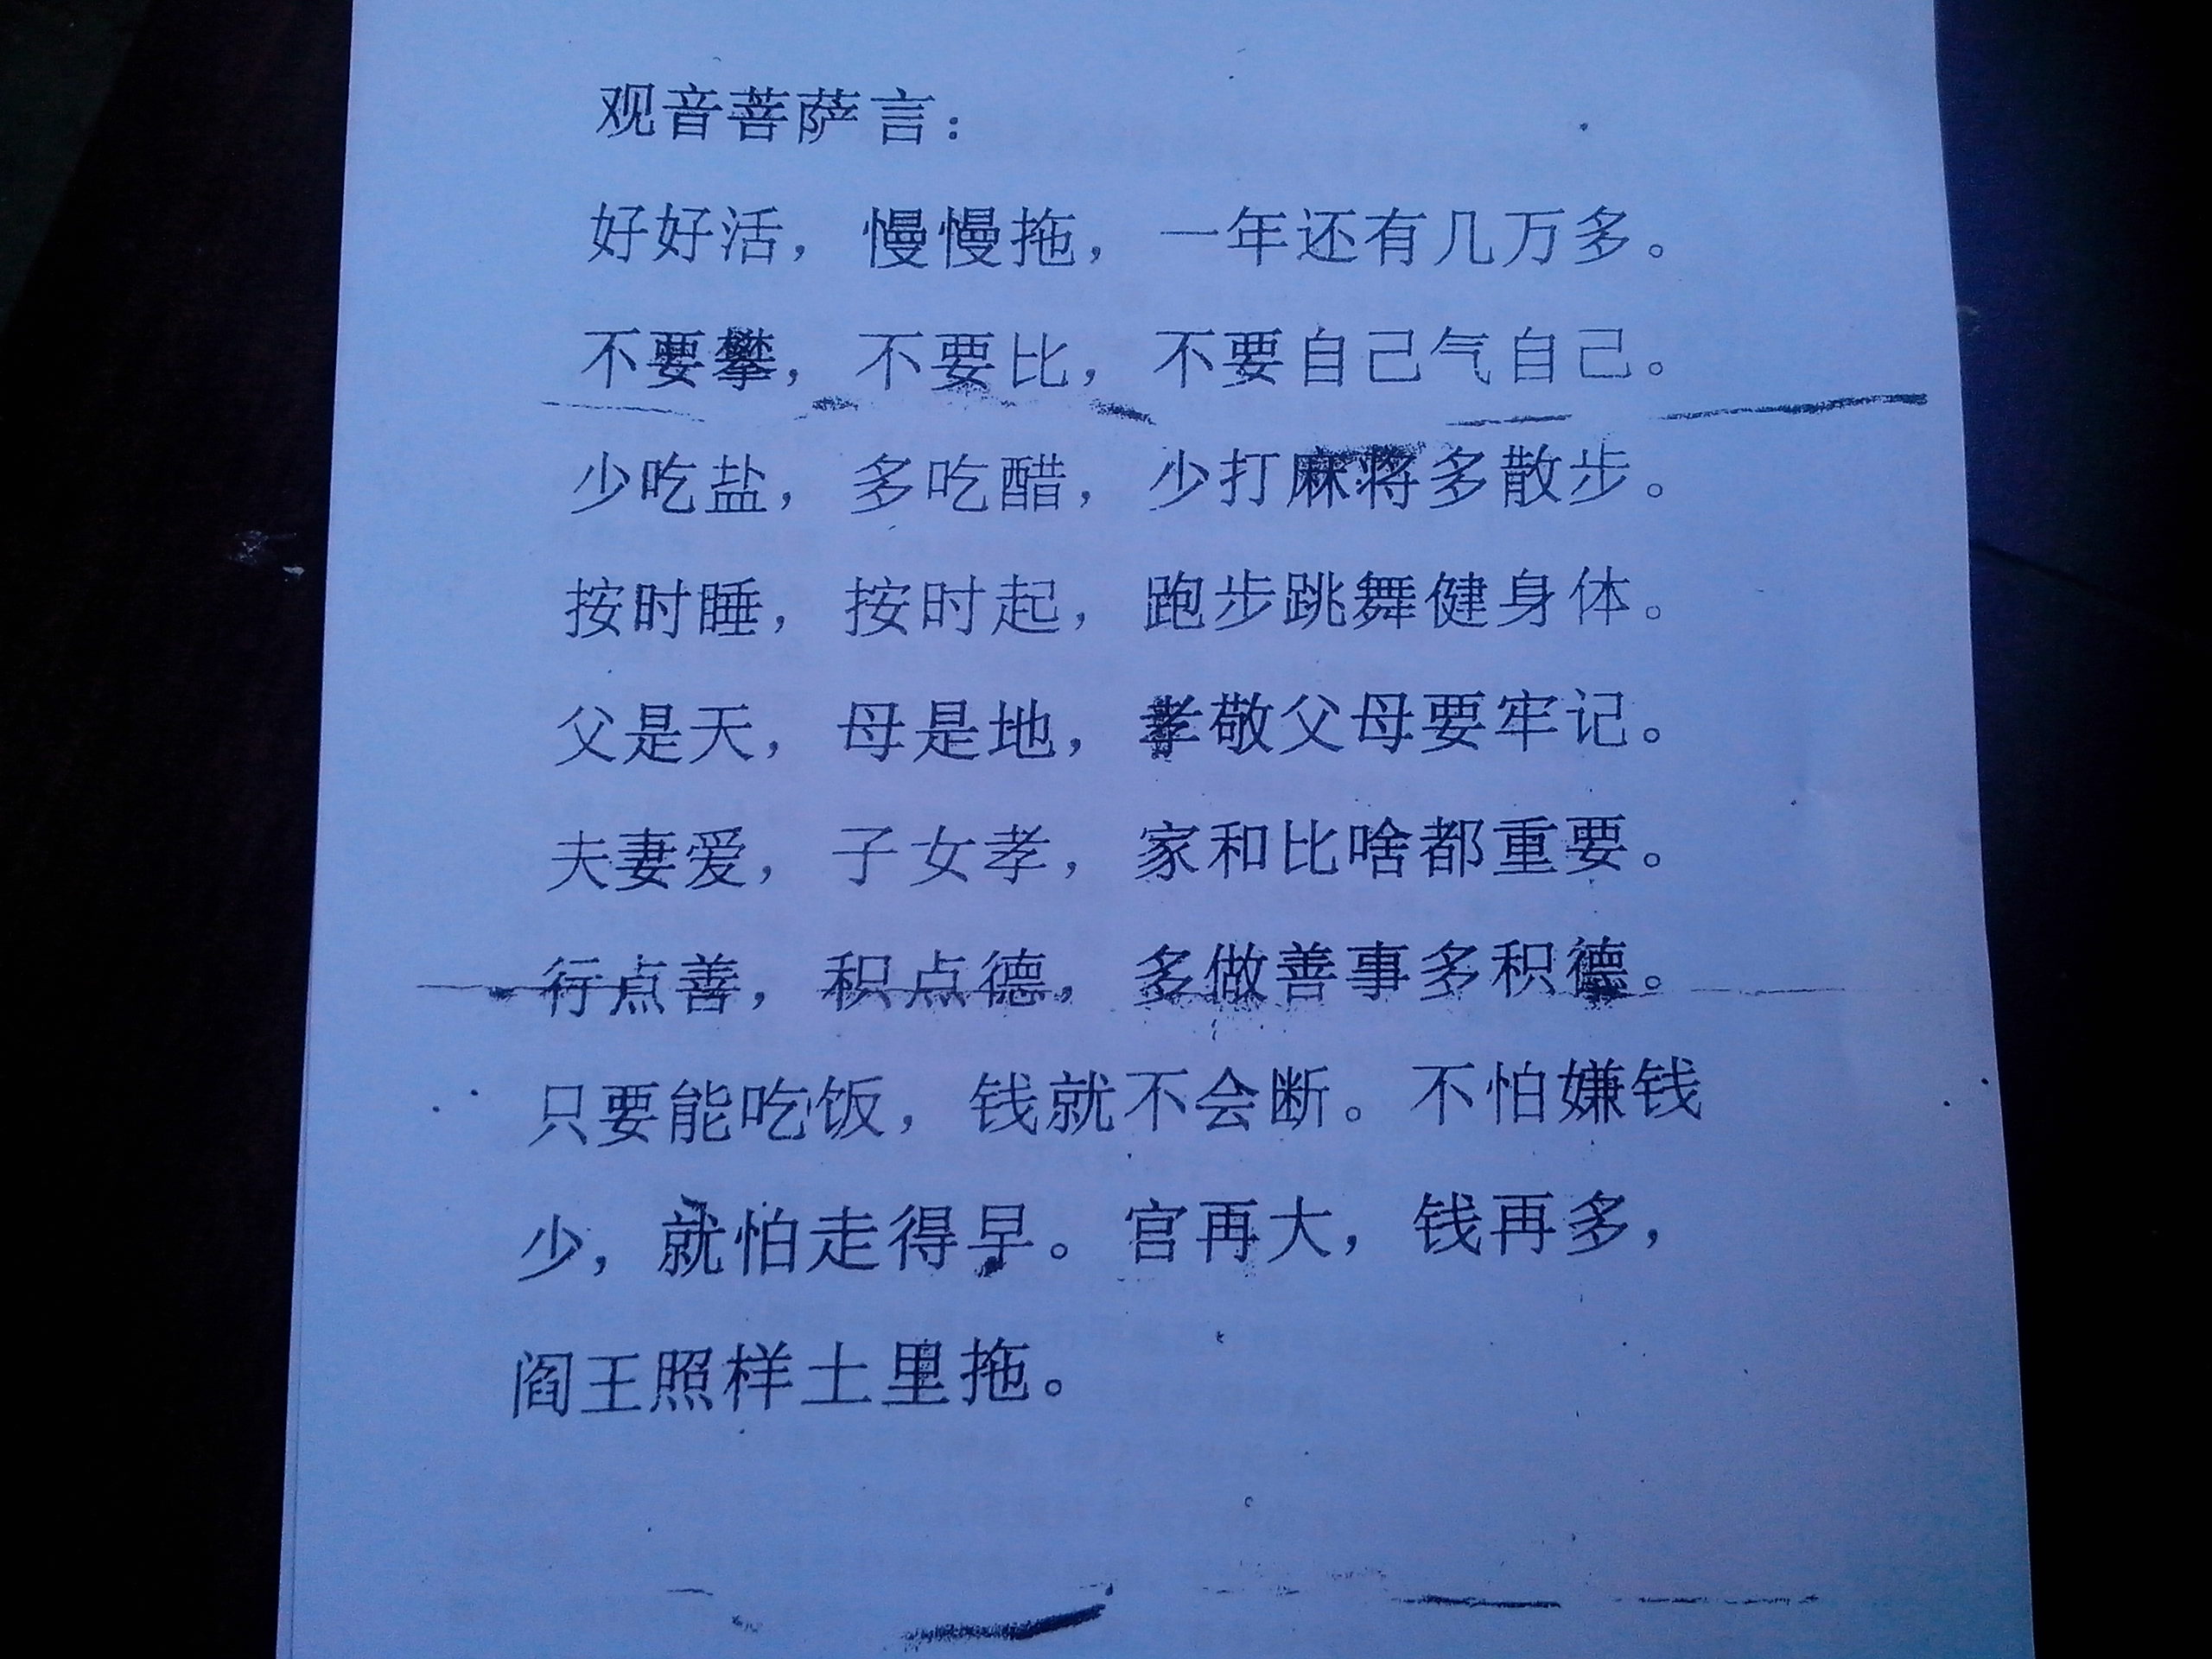 观音菩萨言：
好好活，慢慢拖，一年还有几万多。
不要攀，不要比，不要自己气自己。
少吃盐，多吃醋，少打麻将多散步。
按时睡，按时起，跑步跳舞健身体。
父是天，母是地，孝敬父母要牢记。
夫妻爱，子女孝，家和比啥都重要。
行点善，积点德，多做善事多积德。
只要能吃饭，钱就不会断。不怕嫌钱
少，就怕走得早。官再大，钱再多，
阎王照样土里拖。